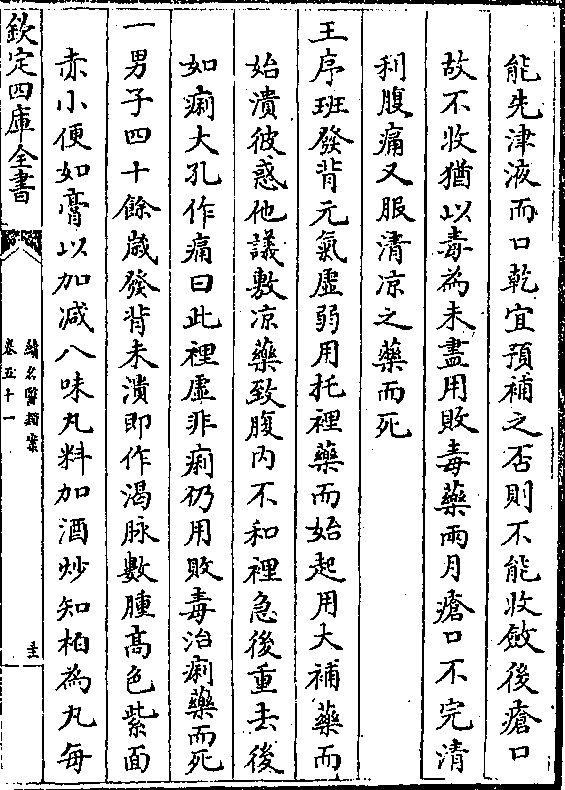 能先津液而口乾宜預補之否則不能收斂後瘡口
故不收猶以毒為未盡用敗毒藥兩月瘡口不完清
利腹痛又服清凉之藥而死
王序班發背元氣虛弱用托裡藥而始起用大補藥而
始潰彼惑他議敷凉藥致腹内不和裡急後重去後
如痢大孔作痛曰此裡虛非痢仍用敗毒治痢藥而死
一男子四十餘歳發背未潰即作渴脉數腫髙色紫面
赤小便如膏以加减八味丸料加酒炒知柏為丸每
欽定四庫全書
續名醫類案
卷五十一